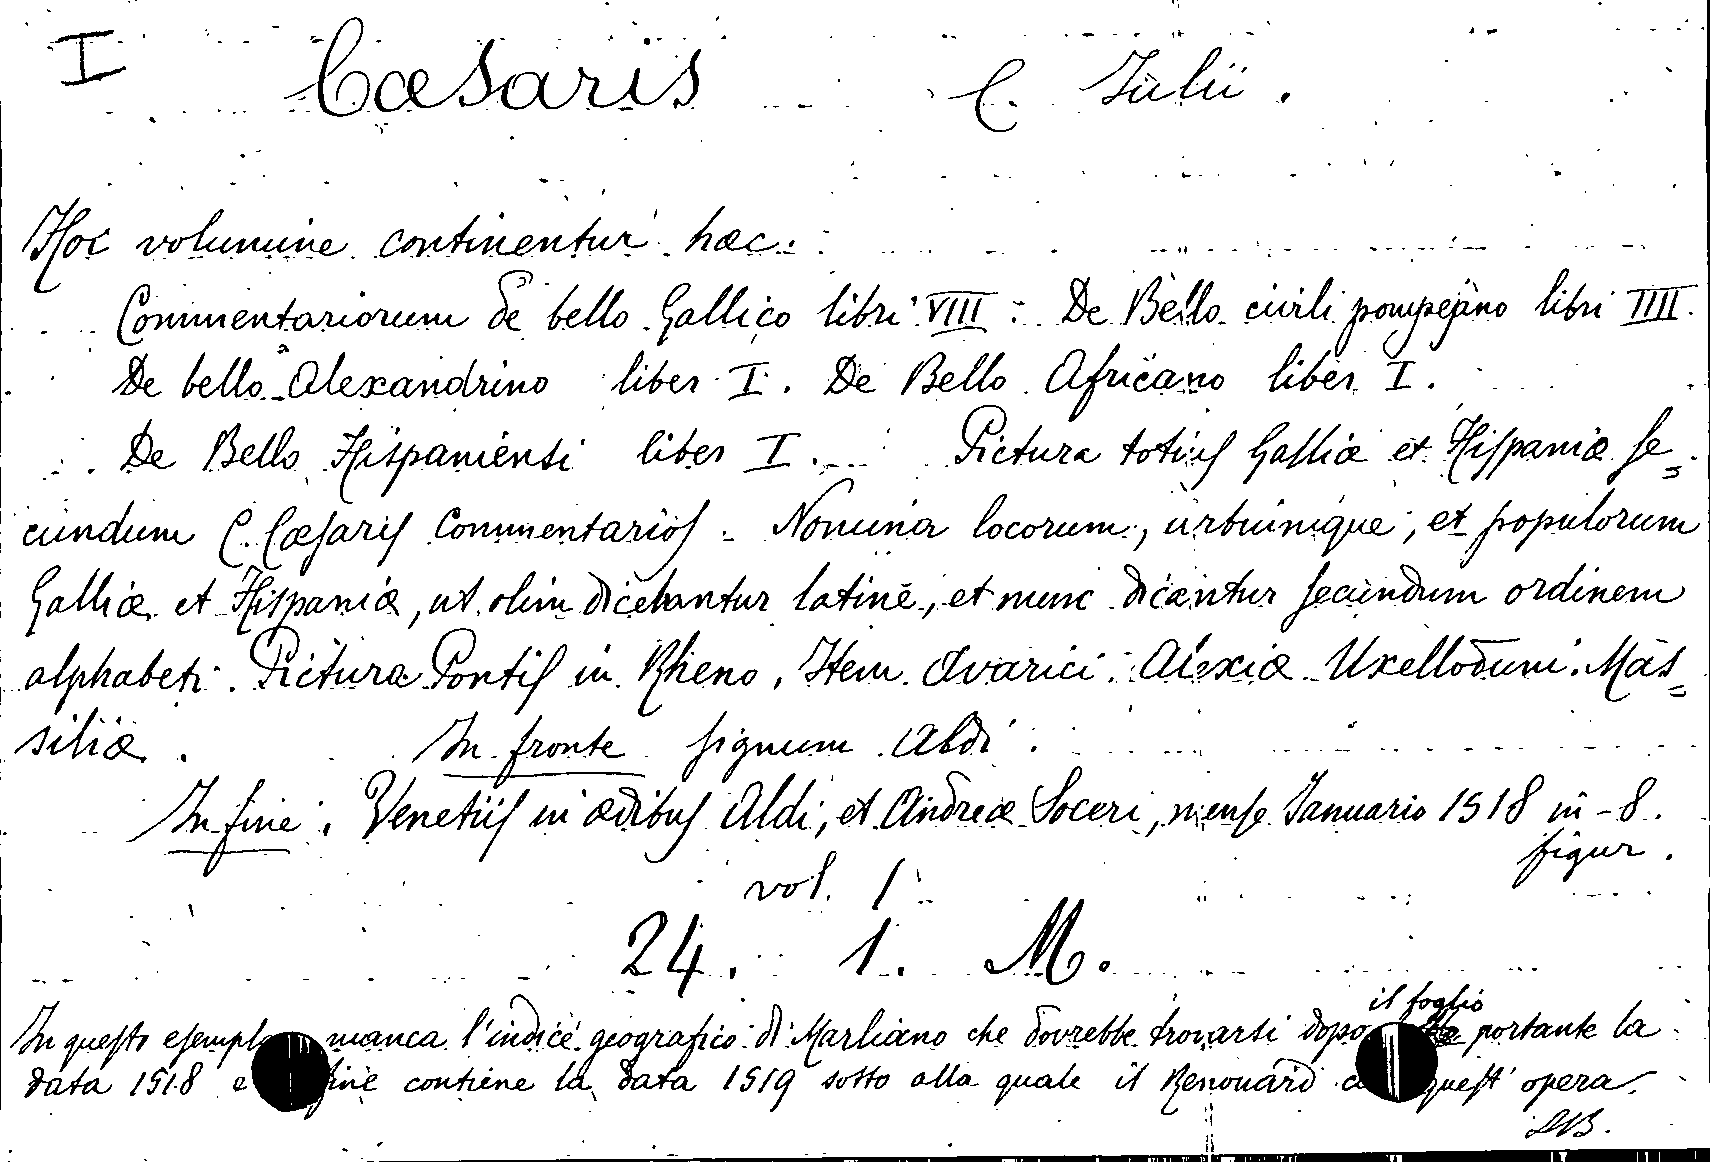 I Cæsaris C. Julii.
Hoc volumine continentur hæc.
Commentariorum de bello Gallico libri VIII : De Bello civili pompejano libri IIII.
De bello Alexandrino liber I. De Bello Africano liber I.
De Bello Hispaniensi liber I. Pictura totius Galliæ et Hispaniæ se=
cundum C. Cæsaris Commentarios. Nomina locorum, urbiumque, et populorum
Galliæ et Hispaniæ, ut olim dicebantur latinè, et nunc dicantur secundum ordinem
alphabeti. Pictura Pontis in Rheno, Item Avarici. Alexiæ Uxelloduni. Mas=
siliæ. In fronte signum Aldi.
In fine. Venetiis in ædibus Aldi, et Andreæ Soceri, mense Januario 1518 in-8.
figur.
vol. 1
24. 1. M.
il foglio
In questo esempl manca l'indice geografico di Marliano che dovrebbe trovarsi dopo portante la
data 1518 e fine contiene la data 1519 sotto alla quale il Renouard quest' opera.